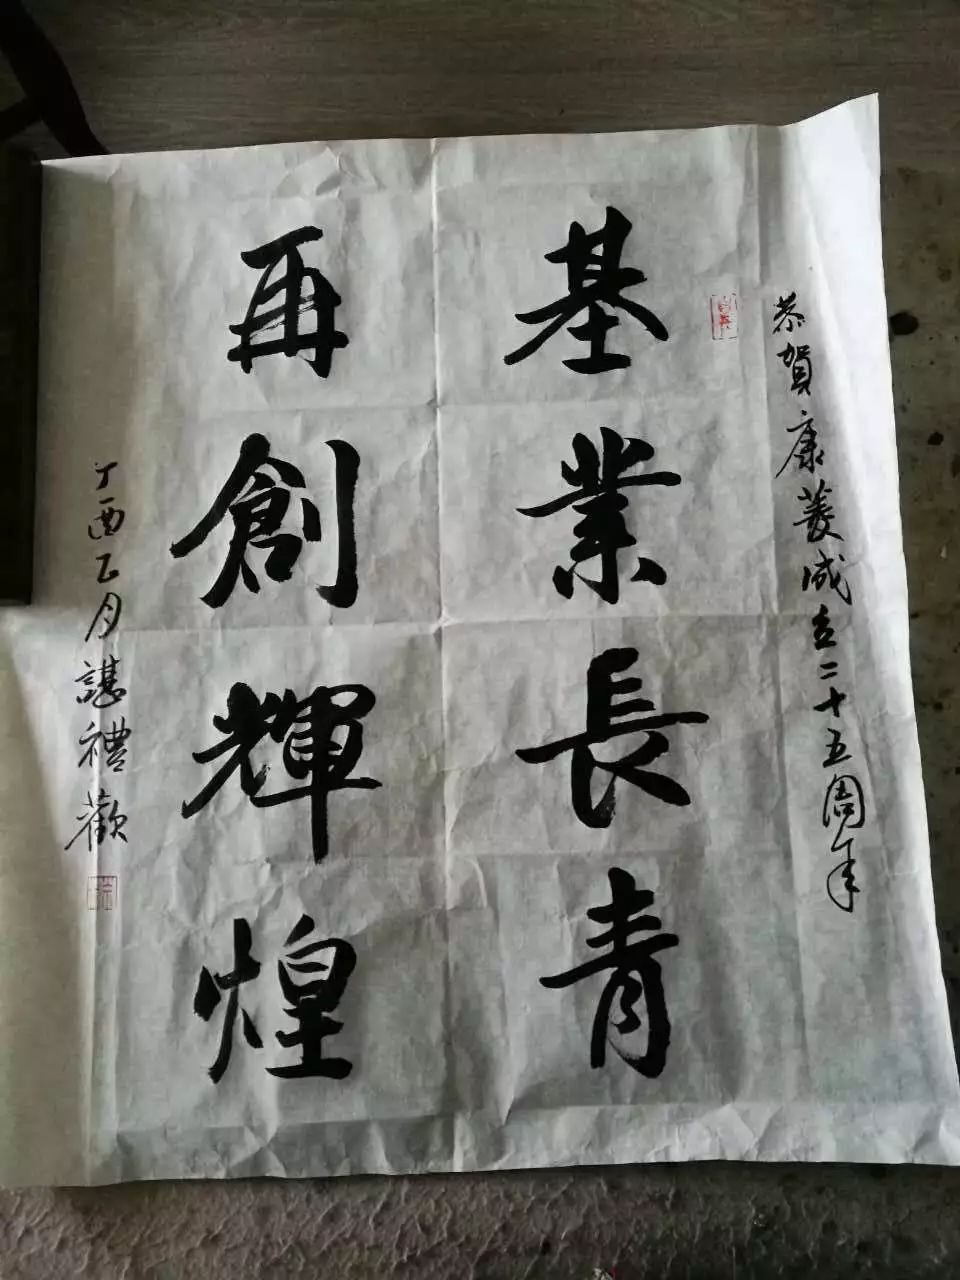 恭賀康菱成立二十五周年
基業長青
再創輝煌
丁酉乙月諶禮歡